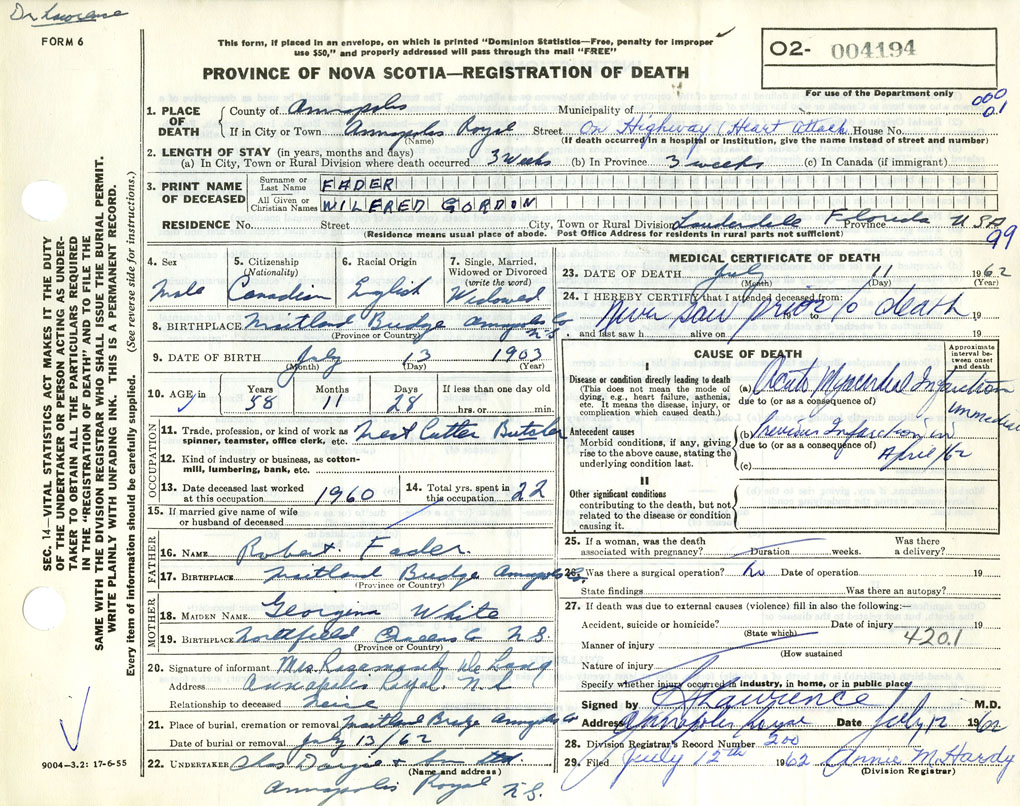 Dr Lawrence
FORM 6
This form, if placed in an envelope, on which is printed "Dominion Statistics—Free, penalty for improper
use $50," and properly addressed will pass through the mail "FREE"
PROVINCE OF NOVA SCOTIA—REGISTRATION OF DEATH
O2- 004194
For use of the Department only
000
01
1. PLACE OF DEATH
County of Annapolis Municipality of
If in City or Town Annapolis Royal Street On Highway (Heart attack House No.
(Name) (If death occurred in a hospital or institution, give the name instead of street and number)
2. LENGTH OF STAY (in years, months and days)
(a) In City, Town or Rural Division where death occurred 3 weeks (b) In Province 3 weeks (c) In Canada (if immigrant)
3. PRINT NAME OF DECEASED
Surname or Last Name FADER
All Given or Christian Names WILFRED GORDON
RESIDENCE No. Street City, Town or Rural Division Lauderdale Floreda Province USA
(Residence means usual place of abode. Post Office Address for residents in rural parts not sufficient)
99
4. Sex
Male
5. Citizenship
(Nationality)
Canadian
6. Racial Origin
English
7. Single, Married, Widowed or Divorced
(write the word)
Widowed
8. BIRTHPLACE Maitland Bridge Annapolis Co N.S.
(Province or Country)
9. DATE OF BIRTH July 13 1903
(Month) (Day) (Year)
10. AGE in Years Months Days If less than one day old
58 11 28 hrs. or min.
OCCUPATION
11. Trade, profession, or kind of work as Meat Cutter Butcher
spinner, teamster, office clerk, etc.
12. Kind of industry or business, as cotton-
mill, lumbering, bank, etc.
13. Date deceased last worked at this occupation 1960
14. Total yrs. spent in this occupation 22
15. If married give name of wife
or husband of deceased
FATHER
16. NAME Robert Fader.
17. BIRTHPLACE Maitland Bridge Annapolis Co.
(Province or Country)
MOTHER
18. MAIDEN NAME Georgina White
19. BIRTHPLACE Northfield Queens Co N.S.
(Province or Country)
20. Signature of informant Mrs. Long
Address Annapolis Royal. N.S
Relationship to deceased neice
21. Place of burial, cremation or removal Maitland Bridge Annapolis Co
Date of burial or removal July 13/62
22. UNDERTAKER & Son
(Name and address)
Annapolis Royal N.S.
MEDICAL CERTIFICATE OF DEATH
23. DATE OF DEATH July 11 1962
(Month) (Day) (Year)
24. I HEREBY CERTIFY that I attended deceased from:
Never saw prior to death 19
and last saw h alive on 19
CAUSE OF DEATH
Approximate interval between onset and death
I
Disease or condition directly leading to death
(This does not mean the mode of
dying, e.g., heart failure, asthenia,
etc. It means the disease, injury, or
complication which caused death.)
(a) Acute Myocardial Infarction
due to (or as a consequence of)
immediate
Antecedent causes
Morbid conditions, if any, giving
rise to the above cause, stating the
underlying condition last.
(b) Previous Infarction in
due to (or as a consequence of) April/62
(c)
II
Other significant conditions
contributing to the death, but not
related to the disease or condition
causing it.
25. If a woman, was the death Was there
associated with pregnancy? Duration weeks. a delivery?
26. Was there a surgical operation? no Date of operation 19
State findings Was there an autopsy?
27. If death was due to external causes (violence) fill in also the following:—
Accident, suicide or homicide? Date of injury 19
(State which)
Manner of injury 420.1
(How sustained
Nature of injury
Specify whether injury occurred in industry, in home, or in public place
Signed by Lawrence M.D.
Address Annapolis Royal Date July 12 1962
28. Division Registrar's Record Number 200
29. Filed July 12th 1962 Annie M. Hardy
(Division Registrar)
SEC. 14—VITAL STATISTICS ACT MAKES IT THE DUTY
OF THE UNDERTAKER OR PERSON ACTING AS UNDER-
TAKER TO OBTAIN ALL THE PARTICULARS REQUIRED
IN THE "REGISTRATION OF DEATH" AND TO FILE THE
SAME WITH THE DIVISION REGISTRAR WHO SHALL ISSUE THE BURIAL PERMIT.
WRITE PLAINLY WITH UNFADING INK. THIS IS A PERMANENT RECORD.
Every item of information should be carefully supplied. (See reverse side for instructions.)
9004-3.2: 17-6-55